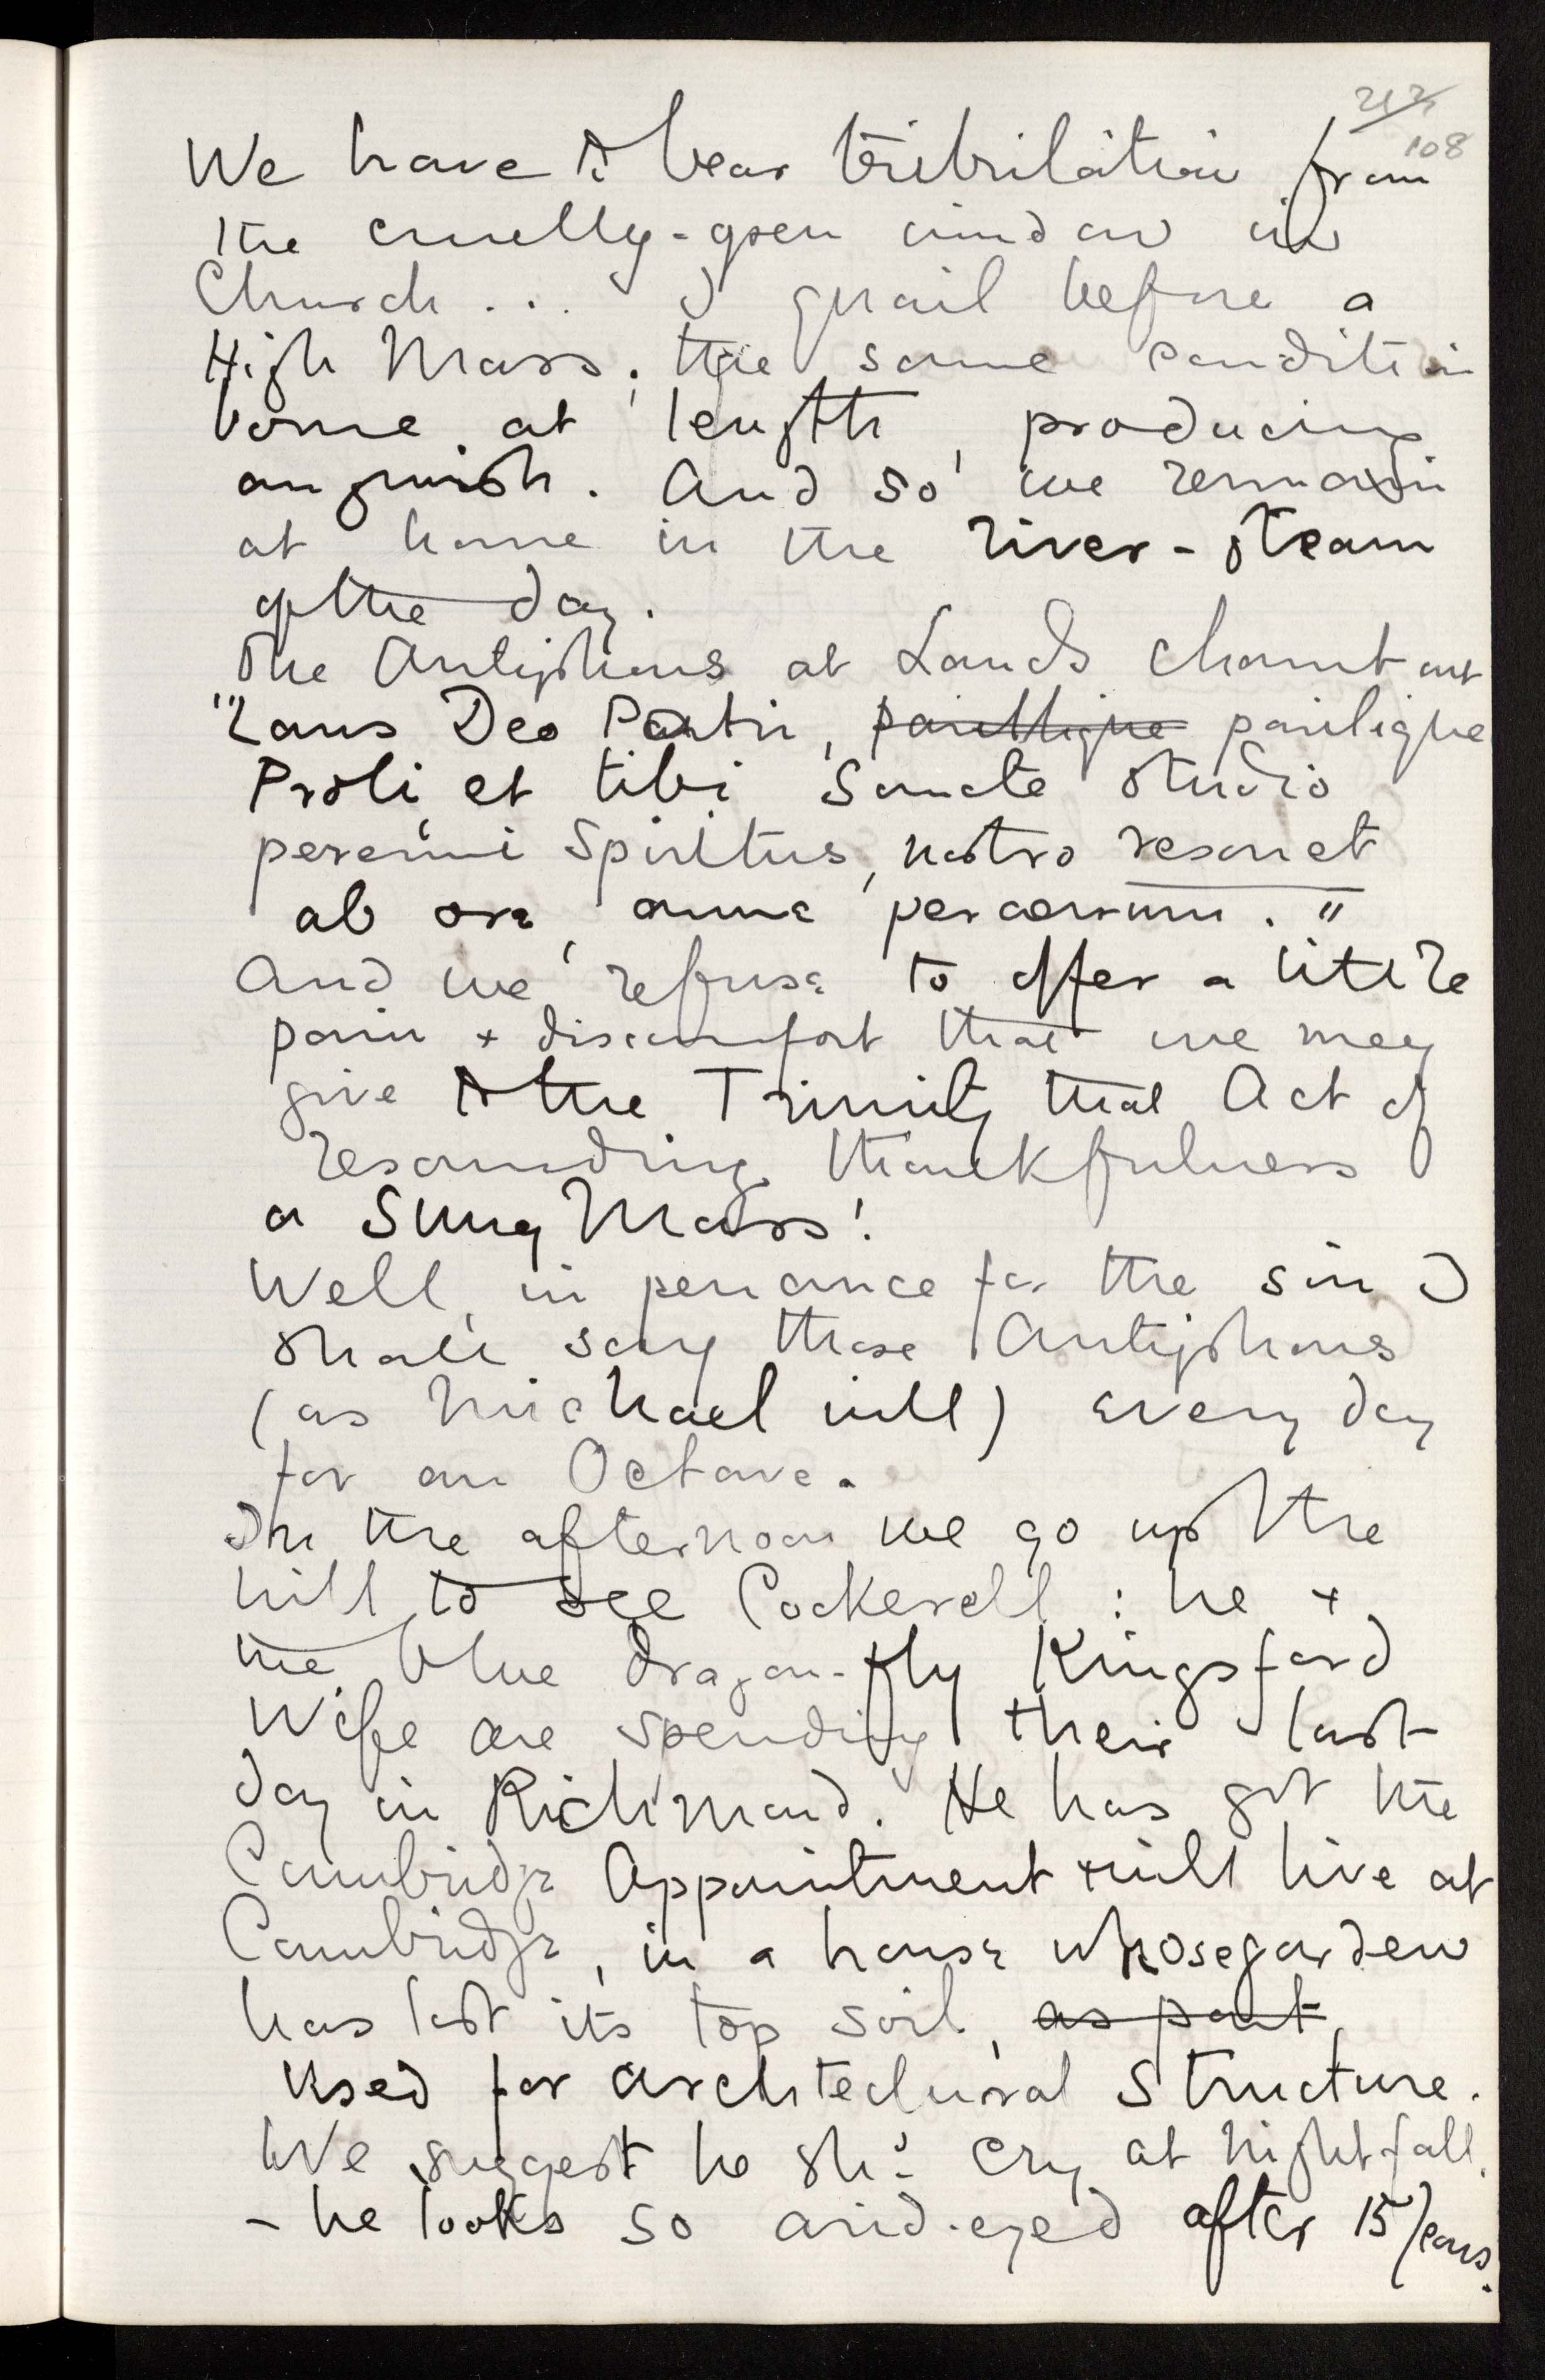 212
108
We have to bear tribulation from
the cruelly-open window in
Church . . . I quail before a
High Mass; the same condition
borne, at length, producing
anguish. And so we remain
at home in the river-steam
of the day.
The Antiphons at Lauds chant out
"Laus Deo Patri, parilique
Proli, et tibi Sancte studio
perenni Spiritus, nostro resonet
ab ore, omne per aevum."
And we refuse to offer a little
pain + discomfort that we may
give to the Trinity that Act of
resounding thankfulness
a Sung Mass!
Well, in penance for the sin I
shall say these Antiphons
(as Michael will) every day
for an Octave.
In the afternoon we go up the
hill to see Cockerell: he +
the blue dragon-fly Kingsford
Wife are spending their last
day in Richmond. He has got the
Cambridge Appointment + will live at
Cambridge, in a house whose garden
has lost its top soil, as part
used for architectural structure.
We suggest he shd cry at nightfall.
- he looks so arid-eyed after 15 years.